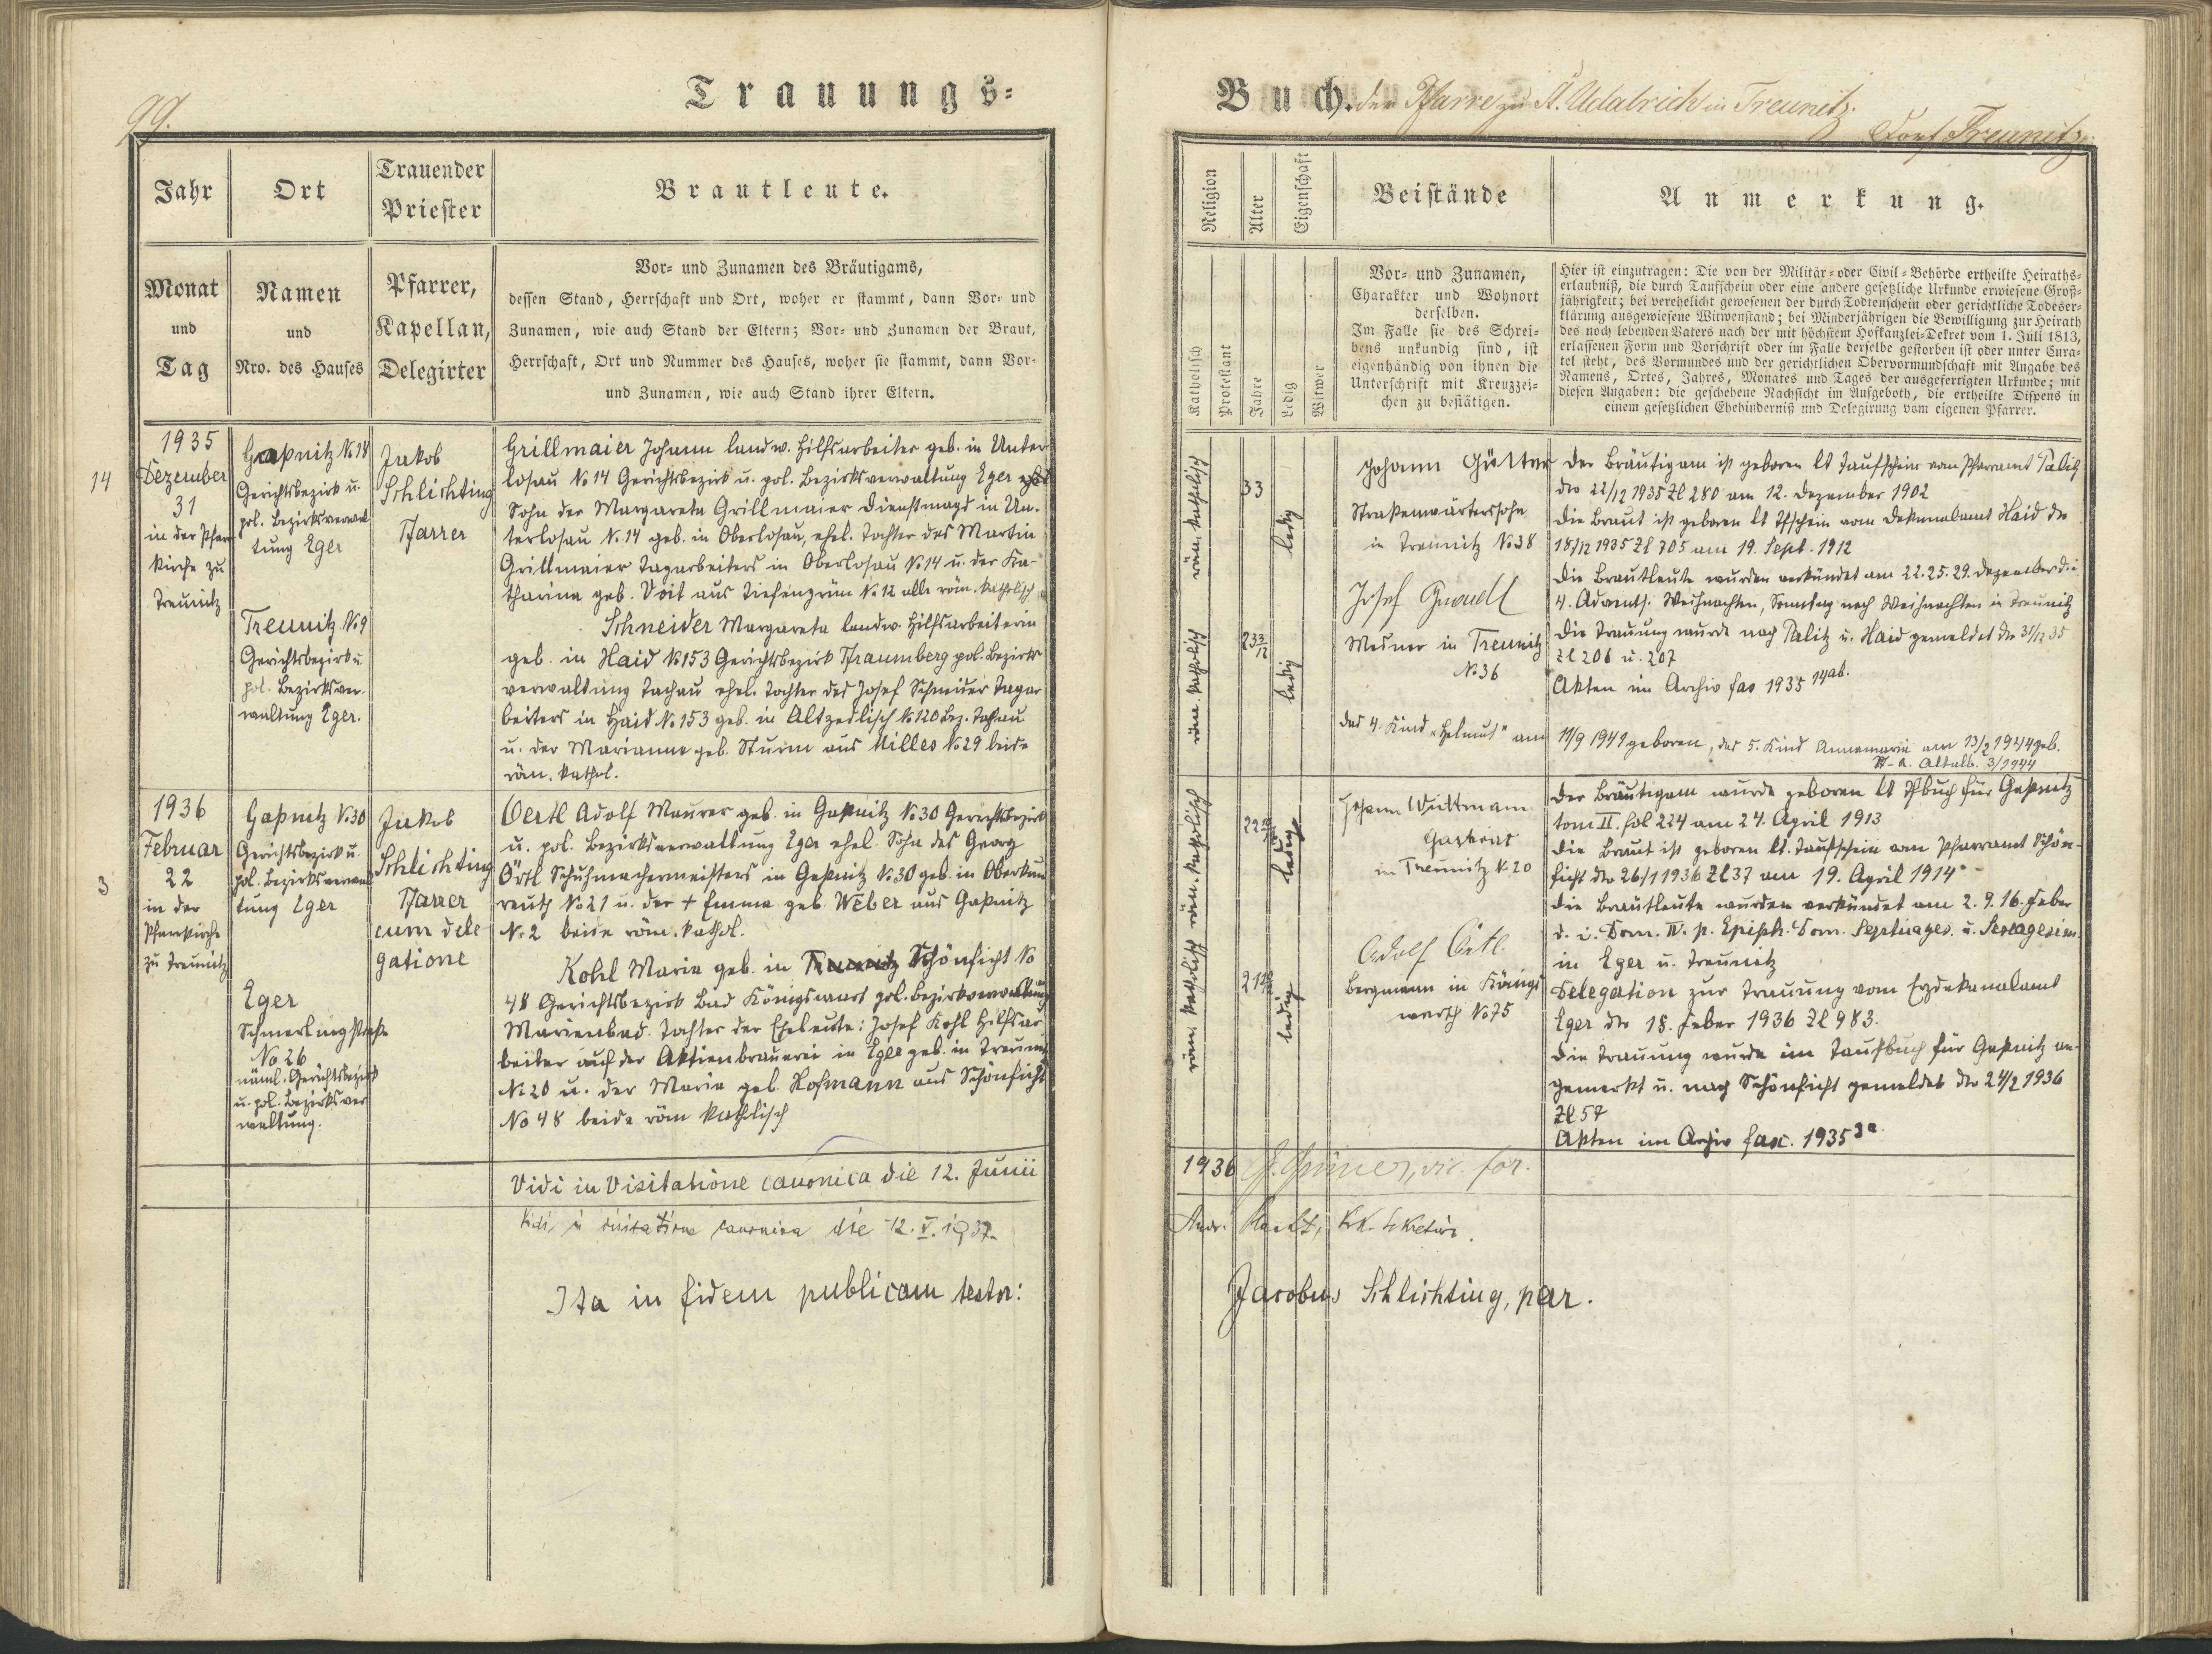 99.
Trauungs-
Jahr
Ort
Trauender
Priester
Brautleute.
Monat
und
Tag
Namen
und
Nro. des Hauses
Pfarrer,
Kapellan,
Delegirter
Vor- und Zunamen des Bräutigams,
dessen Stand, Herrschaft und Ort, woher er stammt, dann Vor- und
Zunamen, wie auch Stand der Eltern; Vor- und Zunamen der Braut,
Herrschaft, Ort und Nummer des Hauses, woher sie stammt, dann Vor-
und Zunamen, wie auch Stand ihrer Eltern.
14
1935
Dezember
31
in der Pfarr
kirche zu
Treunitz
Gaßnitz No 18
Gerichtsbezirk u.
pol. Bezirksverwal
tung Eger
Treunitz No 9
Gerichtsbezirk u
pol. Bezirksver-
waltung Eger.
Jakob
Schlichting
Pfarrer
Grillmaier Johann landw. Hilfsarbeiter geb. in Unter
losau No 14 Gerichtsbezirk u. pol. Bezirksverwaltung Eger
Sohn der Margareta Grillmaier Dienstmagd in Un-
terlosau No 14 geb. in Oberlosau, ehel. Tochter des Martin
Grillmaier Tagarbeiters in Oberlosau No 14 u. der Ka-
tharina geb. Voit aus Tiefengrün No 12 alle röm. katholisch
Schneider Margareta landw. Hilfsarbeiterin
geb. in Haid No 153 Gerichtsbezirk Pfraumberg pol. Bezirks
verwaltung Tachau ehel. Tochter des Josef Schneider Tagar
beiters in Haid No 153 geb. in Altzedlisch No 120 Bez. Tachau
u. der Marianne geb. Sturm aus Milles No 29 beide
röm. kathol.
3
1936
Februar
22
in der
Pfarrkirche
zu Treunitz
Gaßnitz No 30
Gerichtsbezirk u
pol. Bezirksverwal
tung Eger
Eger
Schmerlingstraße
No 26
näml. Gerichtsbezirk
u. pol. Bezirksver
waltung.
Jakob
Schlichting
Pfarrer
cum dele
gatione
Oertl Adolf Maurer geb. in Gaßnitz No 30 Gerichtsbezirk
u. pol. Bezirksverwaltung Eger ehel. Sohn des Georg
Örtl Schuhmachermeisters in Gaßnitz No 30 geb. in Oberkun
reuth No 21 u. der + Emma geb. Weber aus Gaßnitz
No 2 beide röm. kathol.
Kohl Maria geb. in Treunitz Schönficht No
48 Gerichtsbezirk Bad Königswart pol. Bezirksverwaltung
Marienbad. Tochter der Eheleute: Josef Kohl Hilfsar
beiter auf der Aktienbrauerei in Eger geb. in Treunitz
No 20 u. der Maria geb. Hofmann aus Schönficht
No 48 beide röm katholisch
Vidi in Visitatione canonica die 12. Junii
Vidi in visitatione canonica die 12. V. 1937.
Ita in fidem publicam testor:
Buch. der Pfarre zu St. Udalrich in Treunitz.
Dorf Treunitz.
Religion
Alter
Eigenschaft
Beistände
Anmerkung.
Katholisch
Protestant
Jahre
Ledig
Witwer
Vor- und Zunamen,
Charakter und Wohnort
derselben.
Im Falle sie des Schrei-
bens unkundig sind, ist
eigenhändig von ihnen die
Unterschrift mit Kreuzzei-
chen zu bestätigen.
Hier ist einzutragen: Die von der Militär- oder Civil-Behörde ertheilte Heiraths-
erlaubniß, die durch Taufschein oder eine andere gesetzliche Urkunde erwiesene Groß-
jährigkeit; bei verehelicht gewesenen der durch Todtenschein oder gerichtliche Todeser-
klärung ausgewiesene Witwenstand; bei Minderjährigen die Bewilligung zur Heirath
des noch lebenden Vaters nach der mit höchstem Hofkanzlei-Dekret vom 1. Juli 1813,
erlassenen Form und Vorschrift oder im Falle derselbe gestorben ist oder unter Cura-
tel steht, des Vormundes und der gerichtlichen Obervormundschaft mit Angabe des
Namens, Ortes, Jahres, Monates und Tages der ausgefertigten Urkunde; mit
diesen Angaben: die geschehene Nachsicht im Aufgeboth, die ertheilte Dispens in
einem gesetzlichen Ehehinderniß und Delegirung vom eigenen Pfarrer.
röm. katholisch
33
ledig
röm. katholisch
23 3/12
ledig
Johann Gütter
Straßenwärterssohn
in Treunitz No 38
Josef
Mesner in Treunitz
No 36
Der Bräutigam ist geboren lt Taufschein vom Pfarramt Palitz
dto 22/12 1935 Zl 280 am 12. Dezember 1902
Die Braut ist geboren lt Tfschein vom Dekanalamt Haid dto
18/12 1935 Zl 705 am 19. Sept. 1912
Die Brautleute wurden verkündet am 22. 25. 29. Dezember d. i
4. Advents. Weihnachten, Sonntag nach Weihnachten in Treunitz
Die Trauung wurde nach Palitz u. Haid gemeldet dto 31/12 35
Zl 206 u. 207
Akten im Archiv fas 1935 14ab.
das 4. Kind "Helmut" am 11/9 1941 geboren, das 5. Kind Annemarie am 13/2 1944 geb.
Altalb. 3/1944
röm. katholisch
22 10/12
ledig
röm katholisch
21 10/12
ledig
Johann Wittmann
Gastwirt
in Treunitz No 20
Adolf Örtl
Bergmann in Königs
werth No 75
Der Bräutigam wurde geboren lt Tfbuch für Gaßnitz
tom II. fol 224 am 24. April 1913
Die Braut ist geboren lt. Taufschein vom Pfarramt Schön-
ficht dto 26/1 1936 Zl 37 am 19. April 1914
Die Brautleute wurden verkündet am 2. 9. 16. Feber
d. i. Dom. IV. p. Epiph. Dom. Septuages. u. Sexagesim
in Eger u. Treunitz
Delegation zur Trauung vom Erzdekanalamt
Eger dto 18. Feber 1936 Zl 983.
Die Trauung wurde im Taufbuch für Gaßnitz an-
gemerkt u. nach Schönficht gemeldet dto 24/2 1936
Zl 57
Akten im Archiv fasc. 1935 3a
1936 vic. for.
Jacobus Schlichting, par.